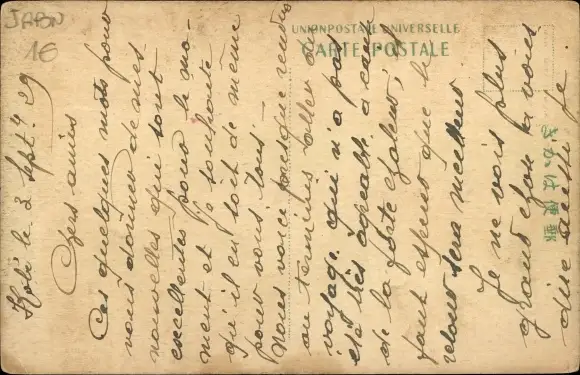 JAPON
16
UNION POSTALE UNIVERSELLE
CARTE POSTALE
きがは便郵
Kobé le 3 Sept. 29
Chers amies
Ces quelques mots pour
vous donner de mes
nouvelles qui sont
excellentes pour le mo-
ment et je souhaite
qu'il en soit de même
pour vous tous.
Nous voici presque rendu
au terminus aller du
voyage qui n'a pas
été très agréable à cause
de la forte chaleur,
faut espérer que le
retour sera meilleur
Je ne vois plus
grand chose à vous
dire